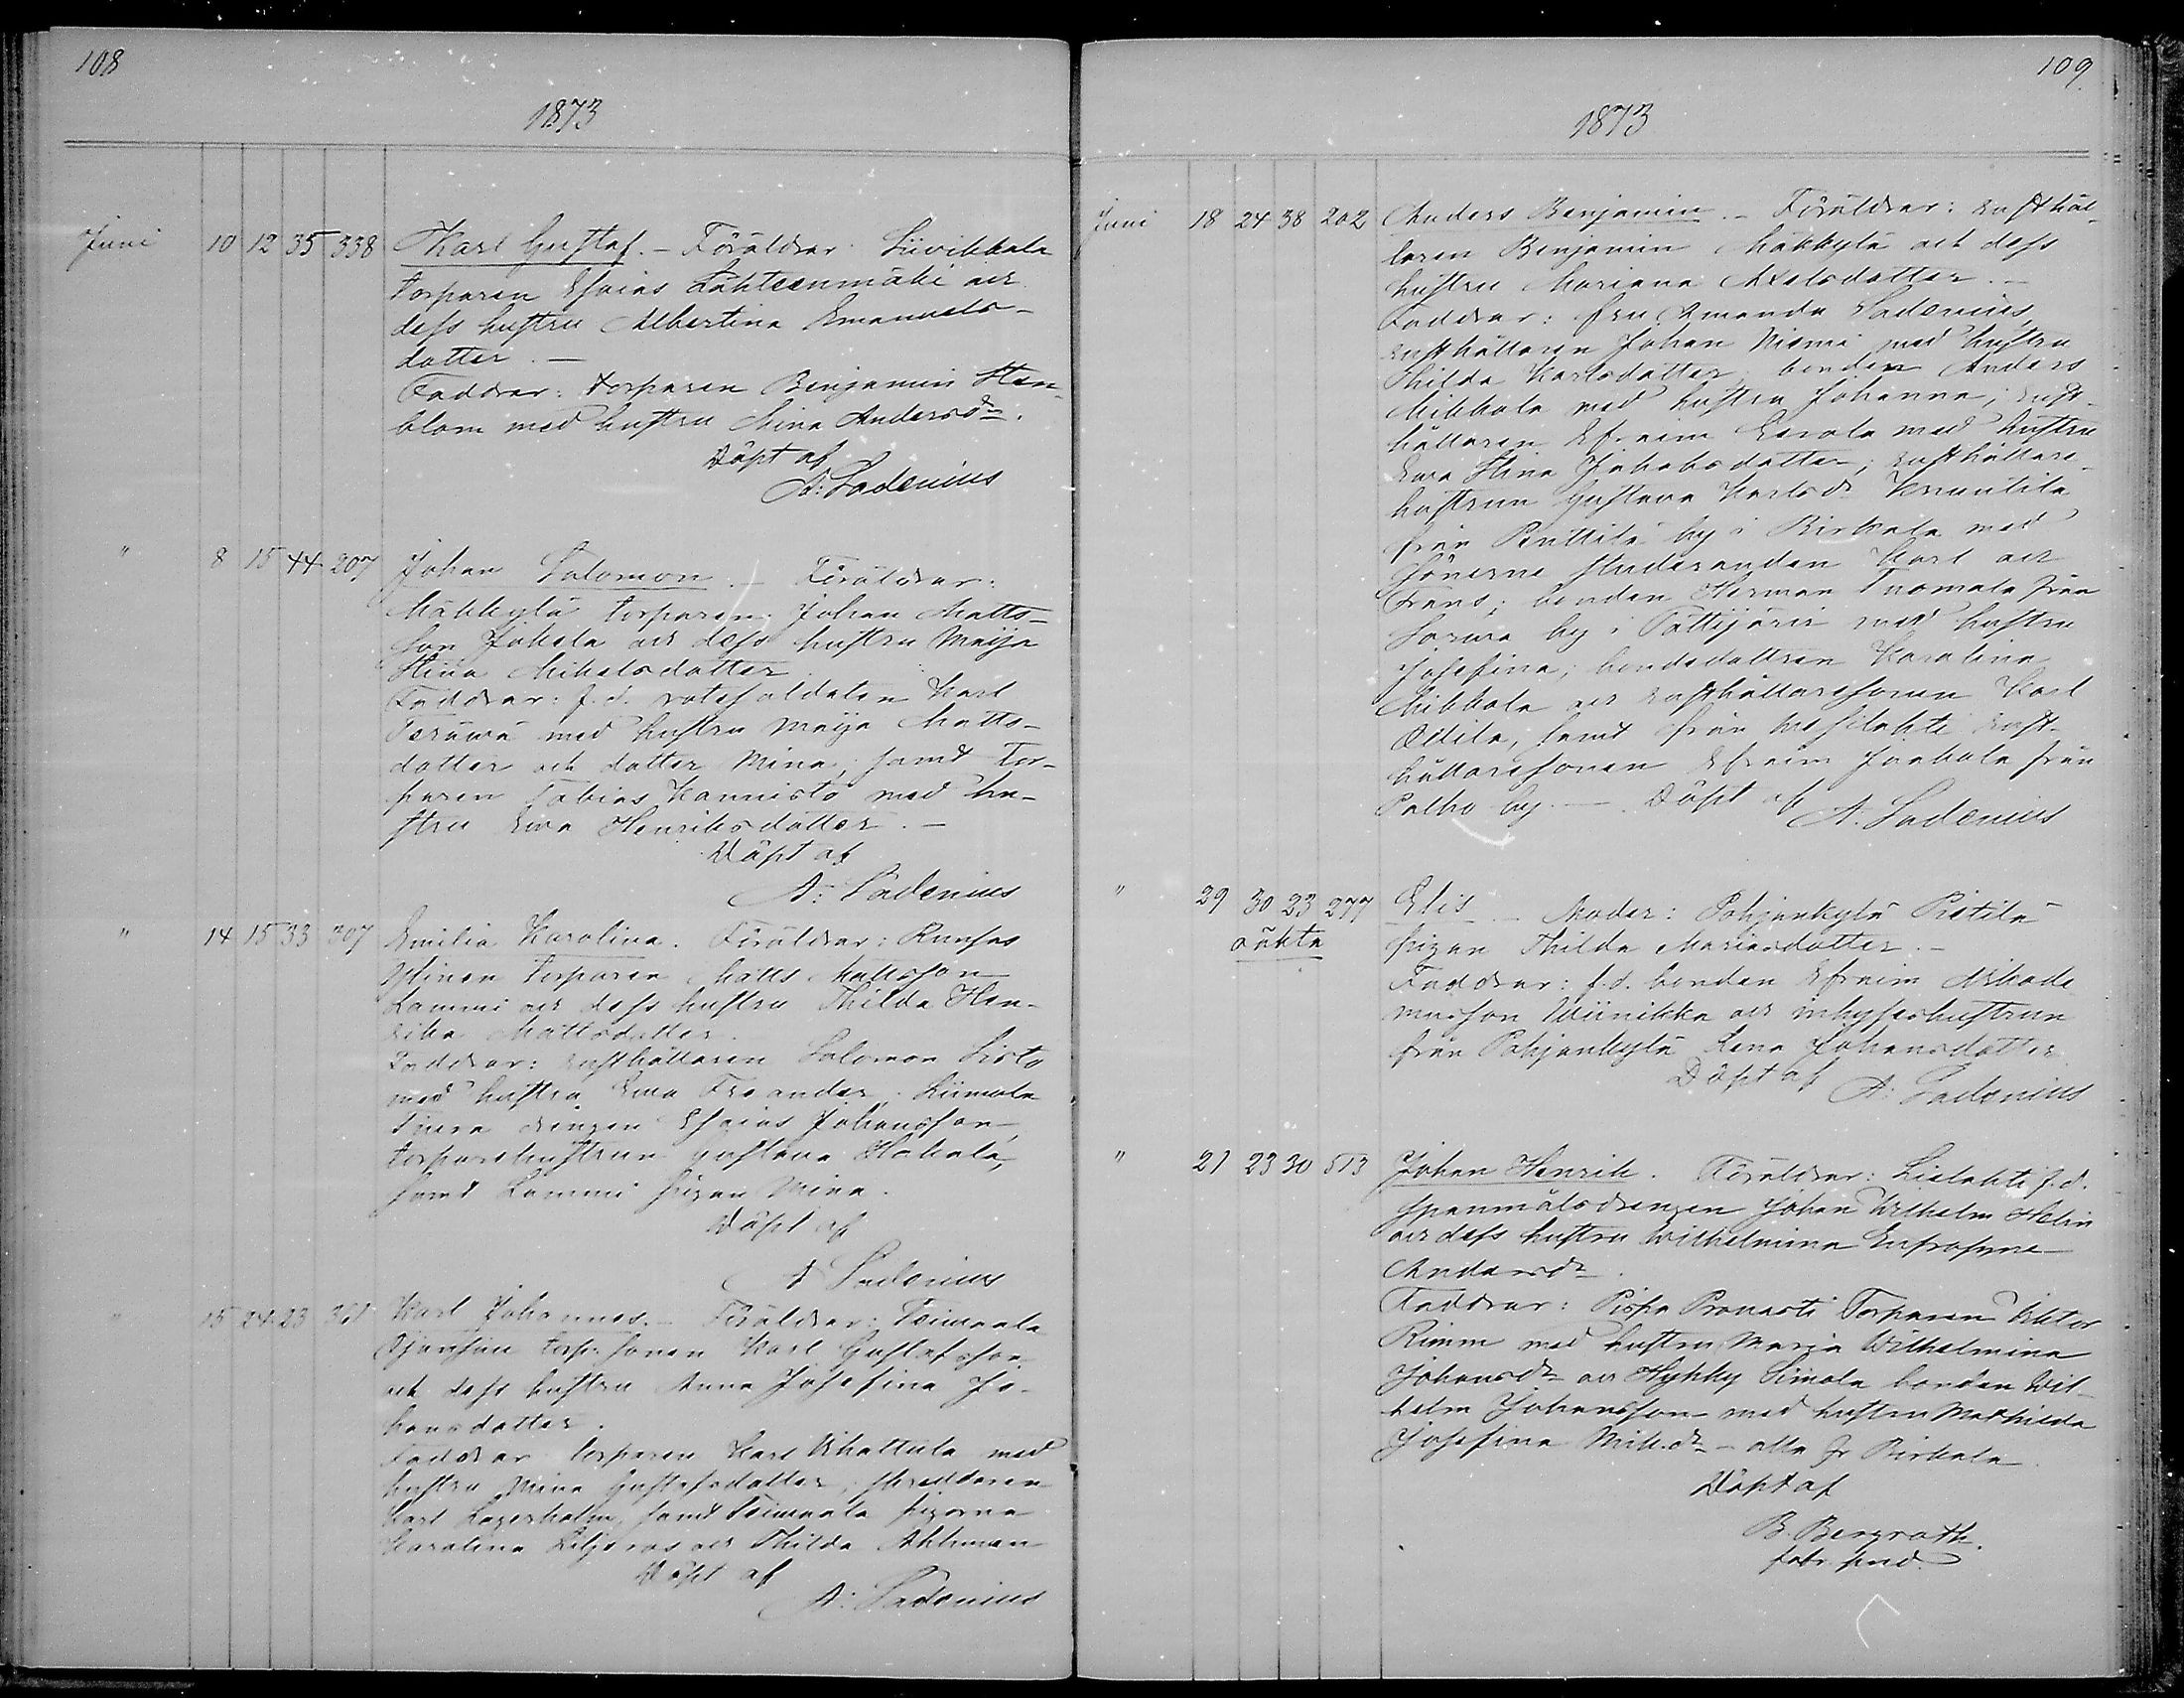 108
1873
Juni 10 12 35 338 Karl Gustaf. - Föräldrar Siivikkala
torparen Esaias Lähteenmäki och
dess hustru Albertina Emanuels-
dotter. -
Faddrar: torparen Benjamin Sten-
blom med hustru Mina Andersdr.
Döpt af
A: Ladenius
" 8 15 44 207 Johan Salomon. - Föräldrar:
Mäkkylä torparen Johan Matts-
son Jokela och dess hustru Maija
Stina Mikelsdotter
Faddrar: f.d. rotesoldaten Karl
Teräwä med hustru Maija Matts-
dotter och dotter Mina, samt tor-
paren Tobias Kannisto med hu-
stru Ewa Henriksdotter. -
Döpt af
A: Ladenius
" 14 15 33 307 Emilia Karolina. Föräldrar:
Ylinen torparen Matts Mattsson
Lammi och dess hustru Thilda Hen-
rika Mattsdotter.
Faddrar: rusthållaren Salomon Sisto
med hustru Ewa
drengen Esaias Johansson,
torparehustrun Gustava Hakala,
samt Lammi pigan Mina.
Döpt af
A Ladenius
" 15 24 23 361 Karl Johannes. - Föräldrar:
torp. sonen Karl Gustafsson
och dess hustru Anna Josefina Jo-
hansdotter.
Faddrar torparen Karl Uhattula med
hustru Mina Gustafsdotter, skreddaren
Karl Lagerholm, samt pigorna
Karolina och Thilda Ahlman
Döpt af
A: Ladenius
109.
1873
Juni 18 24 38 202 Anders Benjamin. - Föräldrar: rusthål-
laren Benjamin Mäkkylä och dess
hustru Mariana Axelsdotter. -
Faddrar: fru Amanda Ladenius,
rusthållaren Johan Niemi med hustru
Thilda Karlsdotter, bonden Anders
Mikkola med hustru Johanna; rust-
hållaren Efraim Eerola med hustru
Ewa Stina Jakobsdotter; rusthållare-
hustrun Gustava Karlsdr
från Penttilä by i Birkala med
sönerne studeranden Karl och
Frans; bonden Herman Tuomala från
by i Pälkjärvi med hustru
Josefina; bondedottren Karolina
Mikkola och rusthållaresonen Karl
samt från Messilahti rust-
hållaresonen Efraim från
Palho by. - Döpt af
A. Ladenius
" 29 30 23 277 Elis - Moder: Pohjankylä Pietilä
oäkta pigan Thilda Mariasdotter. -
Faddrar: f.d. bonden Efraim
Wiinikka och inhyseshustrun
från Pohjankylä Lena Johansdotter
Döpt af
A: Ladenius
" 21 23 30 513 Johan Henrik. Föräldrar: Lielahti f.d.
spanmålsdrengen Johan Wilhelm Helin
och dess hustru Wilhelmina Eufrosyne
Andersdr.
Faddrar: Pispa Provasti Torparen Viktor
Rimm med hustru Maria Wilhelmina
Johansdr och Hyhky Simola bonden Wil-
helm Johansson med hustru Mathilda
Josefina Mik.dr - alla fr Birkala.
Döpt af
B. Bergroth.